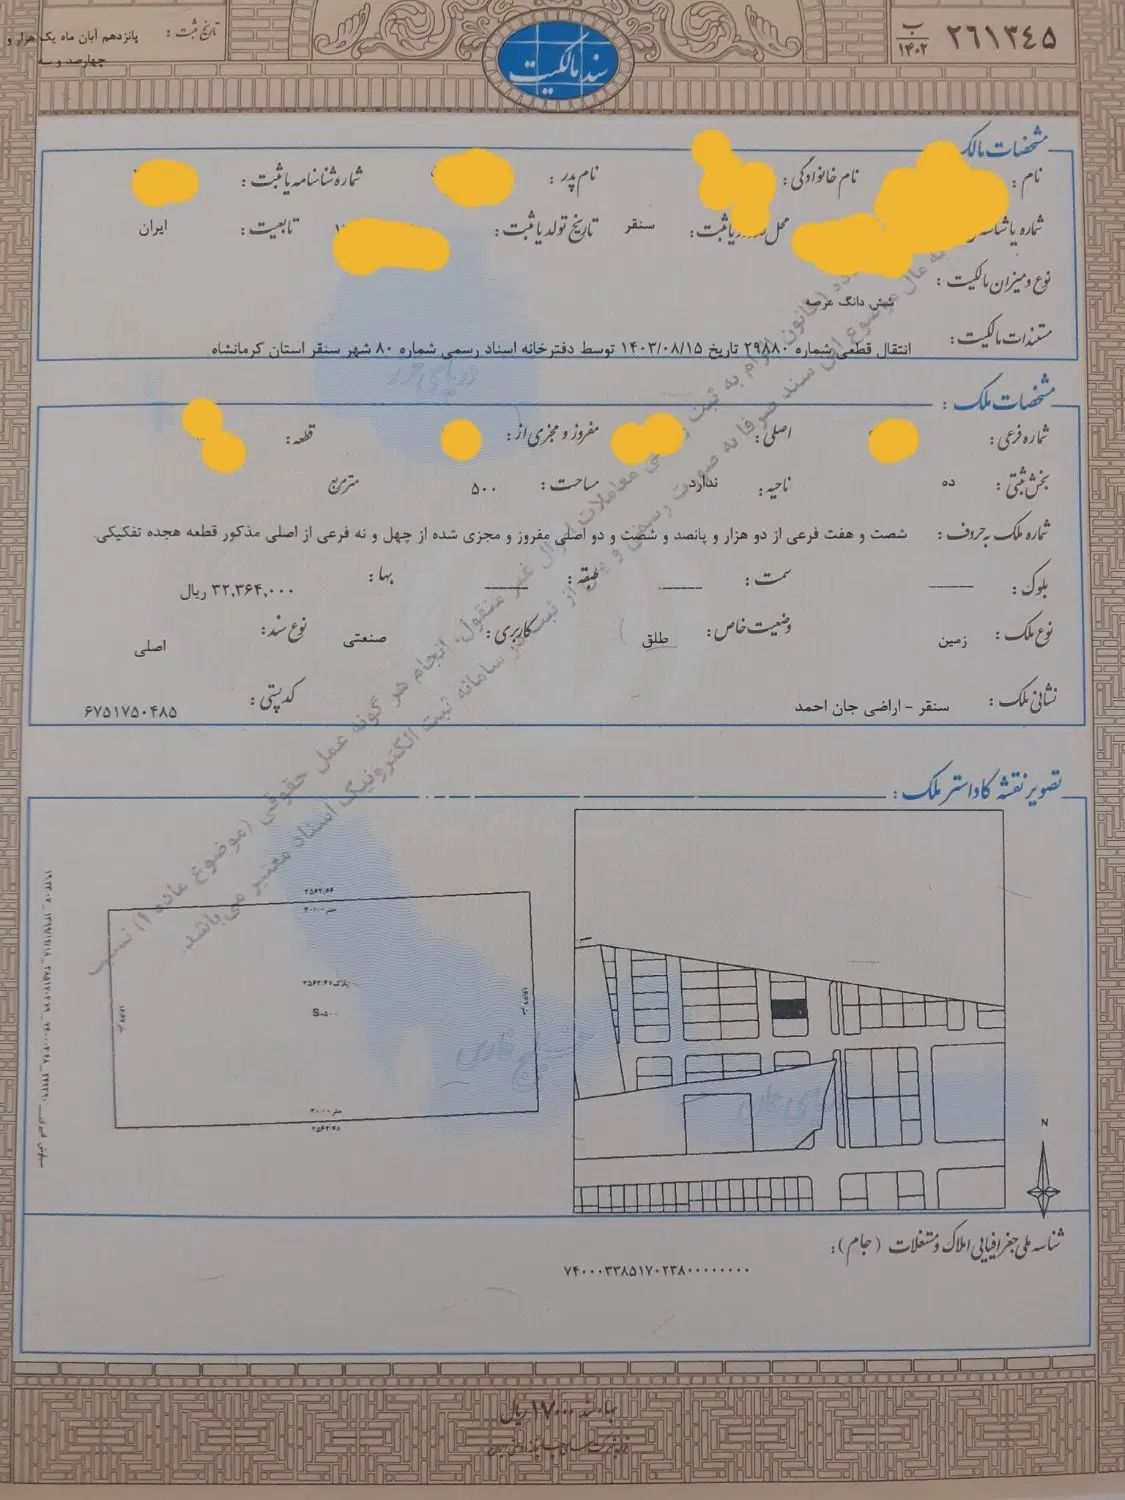 ۲۶۱۳۴۵
ب
۱۴۰۲
سند مالکیت
تاریخ ثبت : پانزدهم آبان ماه یک هزار و
چهارصد و سه
مشخصات مالک
نام : نام خانوادگی : نام پدر : شماره شناسنامه یا ثبت :
شماره یا محل یا ثبت : سنقر تاریخ تولد یا ثبت : تابعیت : ایران
نوع و میزان مالکیت : شش دانگ عرصه
مستندات مالکیت : انتقال قطعی شماره ۲۹۸۸۰ تاریخ ۱۴۰۳/۰۸/۱۵ توسط دفترخانه اسناد رسمی شماره ۸۰ شهر سنقر استان کرمانشاه
دریای خزر
مشخصات ملک :
شماره فرعی : اصلی : مفروز و مجزی از : قطعه :
بخش ثبتی : ده ناحیه : ندارد مساحت : ۵۰۰ مترمربع
شماره ملک به حروف : شصت و هفت فرعی از دو هزار و پانصد و شصت و دو اصلی مفروز و مجزی شده از چهل و نه فرعی از اصلی مذکور قطعه هجده تفکیکی.
بلوک : سمت : طبقه : بها : ۳۲,۳۶۴,۰۰۰ ریال
نوع ملک : زمین وضعیت خاص : طلق کاربری : صنعتی نوع سند : اصلی
نشانی ملک : سنقر - اراضی جان احمد کدپستی : ۶۷۵۱۷۵۰۴۸۵
معاملات اموال غیر منقول، انجام هر گونه عمل حقوقی (موضوع ماده ۱) نسبت
به مال موضوع این سند صرفا به صورت رسمی و پس از ثبت در سامانه ثبت الکترونیک اسناد معتبر می‌باشد.
تصویر نقشه کاداستر ملک :
۲۵۶۲/۵۶
۳۰/۰۰ متر
پلاک ۲۵۶۲/۶۷
S=۵۰۰
۳۰/۰۰ متر
۲۵۶۲/۶۸
خلیج فارس
N
شناسه ملی جغرافیایی املاک و مستغلات (جام) :
۷۴۰۰۰۳۳۸۵۱۷۰۲۳۸۰۰۰۰۰۰۰۰
بهاء سند ۱۷۰۰۰۰ ریال